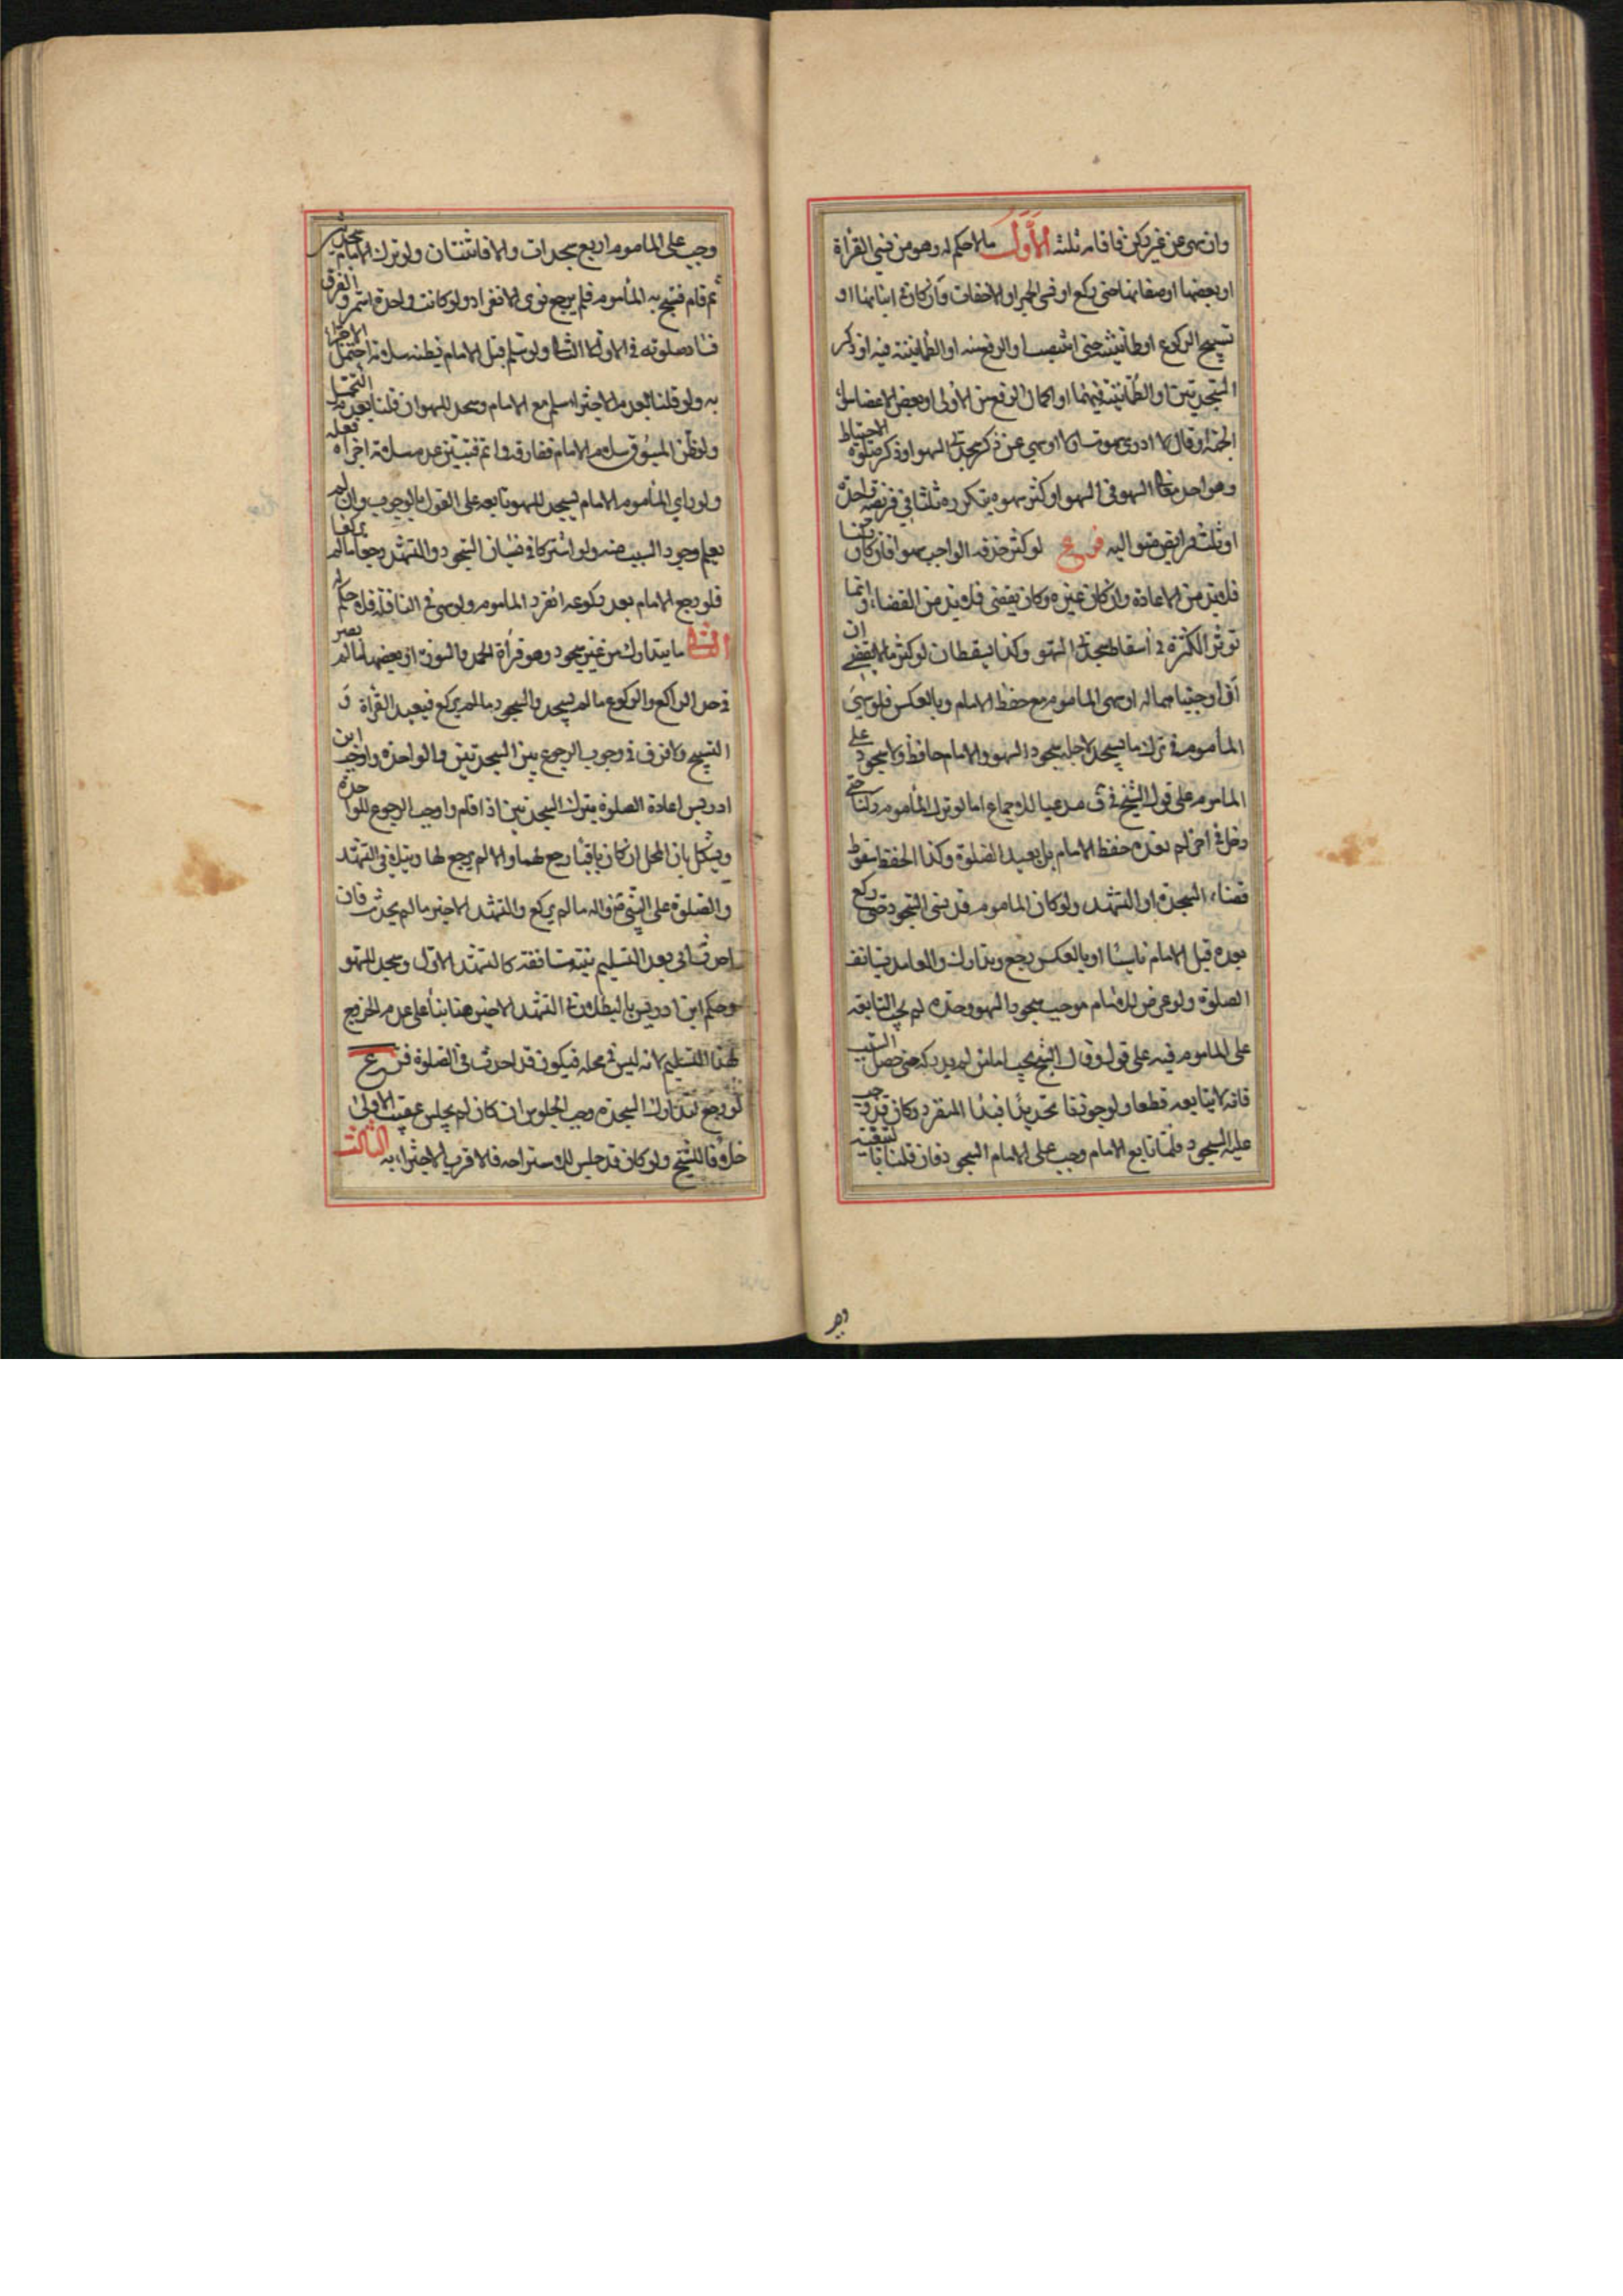 وان سهى عن غير ركن فاقسامه ثلثة الأول ما لا حكم له وهو من نسي القرأة
او بعضها او صفاتها حتى ركع او في الجهر او الاخفات وان كان في اثنائها او
تسبيح الركوع او طمأنينته حتى انتصب او الرفع منه او الطمأنينة فيه او ذكر
السجدتين او الطمأنينة فيهما او اكمال الرفع من الأولى او بعض الاعضاء سوى
الجبهة او قال لا ادري سهوت ام لا او سهى عن ذكر سجدتي السهو او ذكر صلوة الاحتياط
وهو احد معاني السهو في السهو او كثر سهوه بتكرره ثلثا في فريضة واحدة
او ثلث فرايض متوالية فرع لو كثر حذفه الواجب سهوا فان كان ركنا
فلا بد من الاعادة وان كان غيره وكان يقضى فلا بد من القضاء وانما
تؤثر الكثرة في اسقاط سجدتي السهو وكذا يسقطان لو كثر ما لا يقضى ان
اوجبناهما له او سهى الماموم مع حفظ الامام وبالعكس فلو نسي
المأموم في ترك ما يسجد لاجله سجود السهو والامام حافظ ولا سجود على
الماموم على قول الشيخ في ف مدعيا للاجماع اما لو ترك المأموم ركنا حتى
دخل في اخر لم يفده حفظ الامام بل يعيد الصلوة وكذا الحفظ سقوط
قضاء السجدة او التشهد ولو كان الماموم قد نسي السجود حتى ركع
بعده قبل الامام ناسيا او بالعكس رجع وتدارك والعامد يستانف
الصلوة ولو عرض للامام موجب سجود السهو وحده لم يجب المتابعة
على الماموم فيه على قول وقال الشيخ يجب اما من لم يدركه حتى حصل السبب
فانه لا يتابعه قطعا ولو جوزنا تجديدا فبدأ المنفرد وكان قد وجب
عليه السجود فلما تابع الامام وجب على الامام السجود فان قلنا
وجب على الماموم اربع سجدات والا فاثنتان ولو ترك الامام سجدة
ثم قام فسبح به المأموم فلم يرجع نوى الانفراد ولو كانت واحدة استمر والفرق
فساد صلوته في الاولى لا الثانية ولو سلم قبل الامام لظنه سلامه احتمل الاجتزاء
به ولو قلنا بعدم الاجتزاء سلم مع الامام وسجد للسهو ان قلنا بعدم التحمل
ولو ظن المسبوق سلام الامام ففارقه واتم فتبين عدم سلامه اجزاه فعله
ولو راى المأموم الامام يسجد للسهو تابعه على القول بالوجوب وان لم
يعلم وجود السبب منه ولو اشتركا في نسيان السجود والتشهد رجعا ما لم يركعا
فلو رجع الامام بعد ركوعه انفرد الماموم ولو سهى في النافلة فلا حكم له
الثاني ما يتدارك من غير سجود وهو قرأة الحمد والسورة او بعضها ما لم يصر
في حد الراكع والركوع ما لم يسجد والسجود ما لم يركع فيعيد القرأة و
التسبيح ولا فرق في وجوب الرجوع بين السجدتين والواحدة واوجب ابن
ادريس اعادة الصلوة بترك السجدتين اذا قام واوجب الرجوع للواحدة
ويشكل بان المحل ان كان باقيا رجع لهما والا لم يرجع لها ويتلافى التشهد
والصلوة على النبي ص واله ما لم يركع والتشهد الاخير ما لم يحدث فان
احدث اتى بعد التسليم بنية مستانفة كالتشهد الاول وسجد للسهو
وحكم ابن ادريس بالبطلان في التشهد الاخير هنا بناء على عدم الخروج
بهذا التسليم لانه ليس في محله فيكون قد احدث في الصلوة فرع
لو رجع لتدارك السجدة وجب الجلوس ان كان لم يجلس عقيب الاولى
خلافا للشيخ ولو كان قد جلس للاستراحة فالاقرب الاجتزاء به الثالث